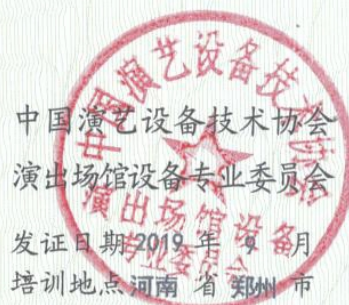 中国演艺设备技术协会
演出场馆设备专业委员会
发证日期 2019 年 9 月
培训地点 河南 省 郑州 市
中国演艺设备技术协会
演出场馆设备
专业委员会